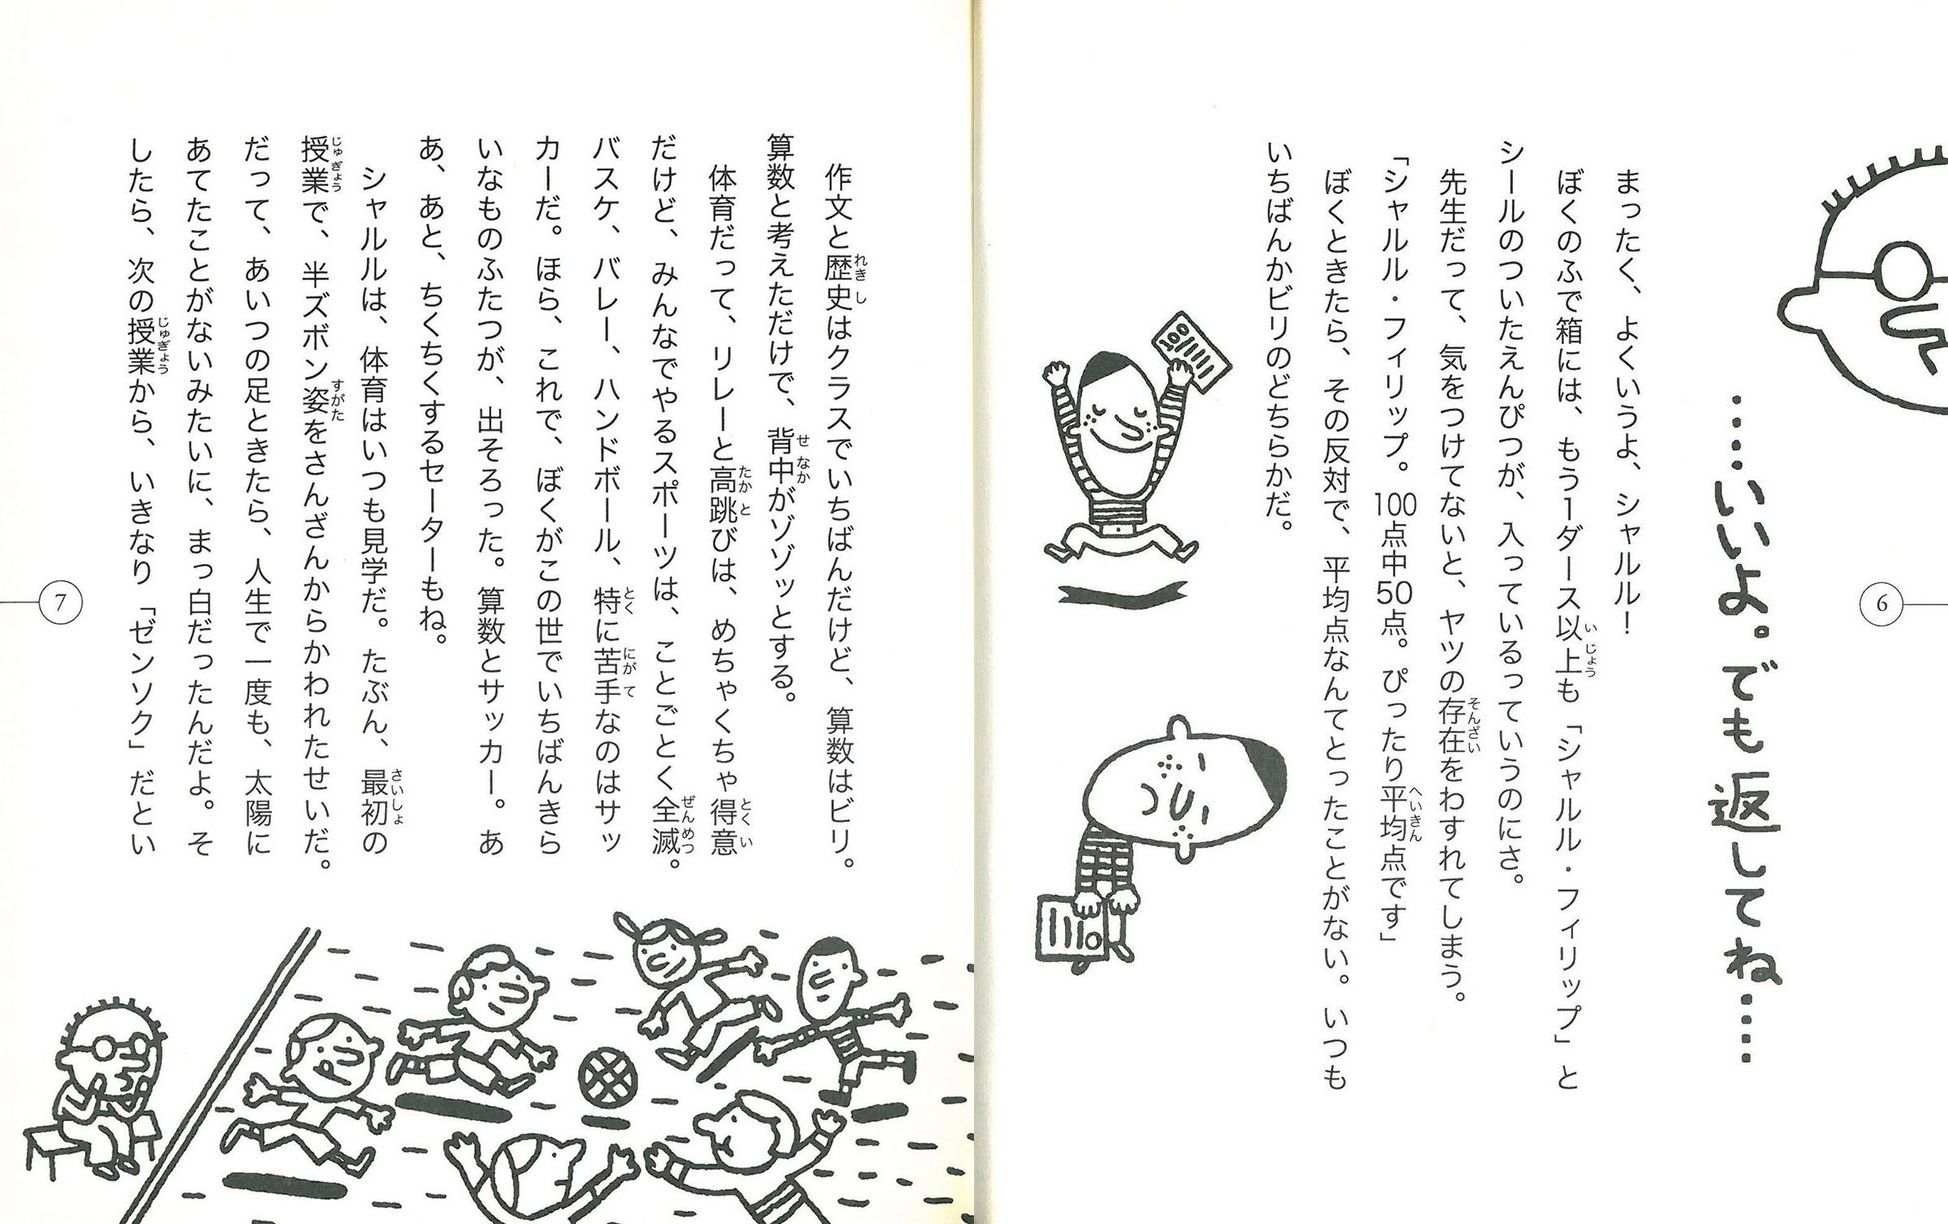 ……いいよ。でも返してね……
まったく、よくいうよ、シャルル！
ぼくのふで箱には、もう一ダース以上も「シャルル・フィリップ」と
シールのついたえんぴつが、入っているっていうのにさ。
先生だって、気をつけてないと、ヤツの存在をわすれてしまう。
「シャルル・フィリップ。100点中50点。ぴったり平均点です」
ぼくときたら、その反対で、平均点なんてとったことがない。いつも
いちばんかビリのどちらかだ。
6
作文と歴史はクラスでいちばんだけど、算数はビリ。
算数と考えただけで、背中がゾゾッとする。
体育だって、リレーと高跳びは、めちゃくちゃ得意
だけど、みんなでやるスポーツは、ことごとく全滅。
バスケ、バレー、ハンドボール、特に苦手なのはサッ
カーだ。ほら、これで、ぼくがこの世でいちばんきら
いなものふたつが、出そろった。算数とサッカー。あ
あ、あと、ちくちくするセーターもね。
シャルルは、体育はいつも見学だ。たぶん、最初の
授業で、半ズボン姿をさんざんからかわれたせいだ。
だって、あいつの足ときたら、人生で一度も、太陽に
あてたことがないみたいに、まっ白だったんだよ。そ
したら、次の授業から、いきなり「ゼンソク」だとい
7